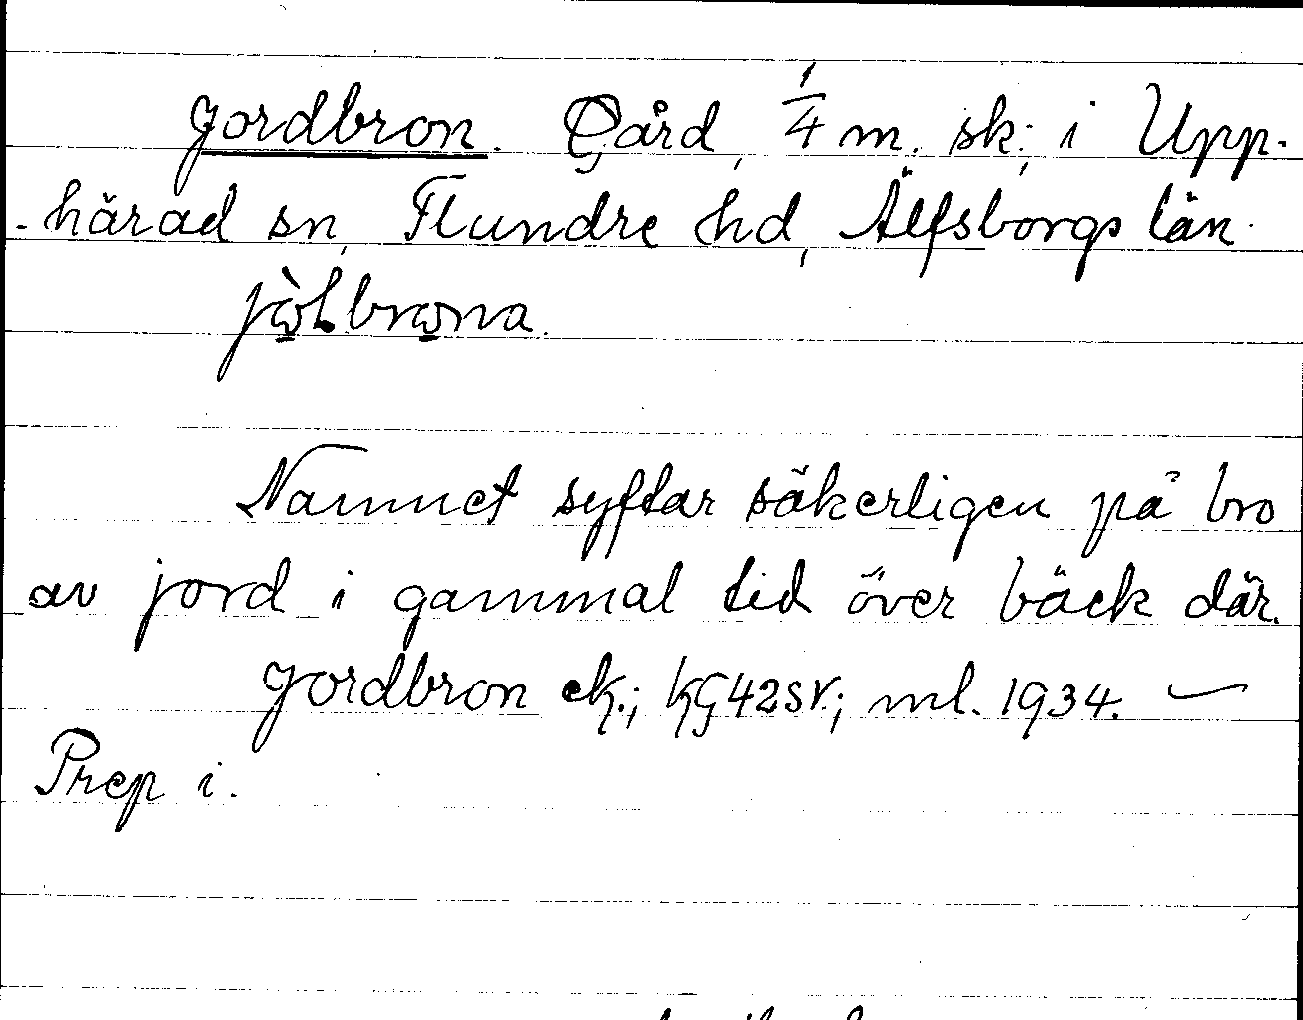 Jordbron. Gård, 1/4 m. sk; i Upp-
-härad sn, Flundre hd, Älfsborgs län.
Namnet syftar säkerligen på bro
av jord i gammal tid över bäck där.
Jordbron ek.; kG42SV.; ml. 1934. —
Prep i.